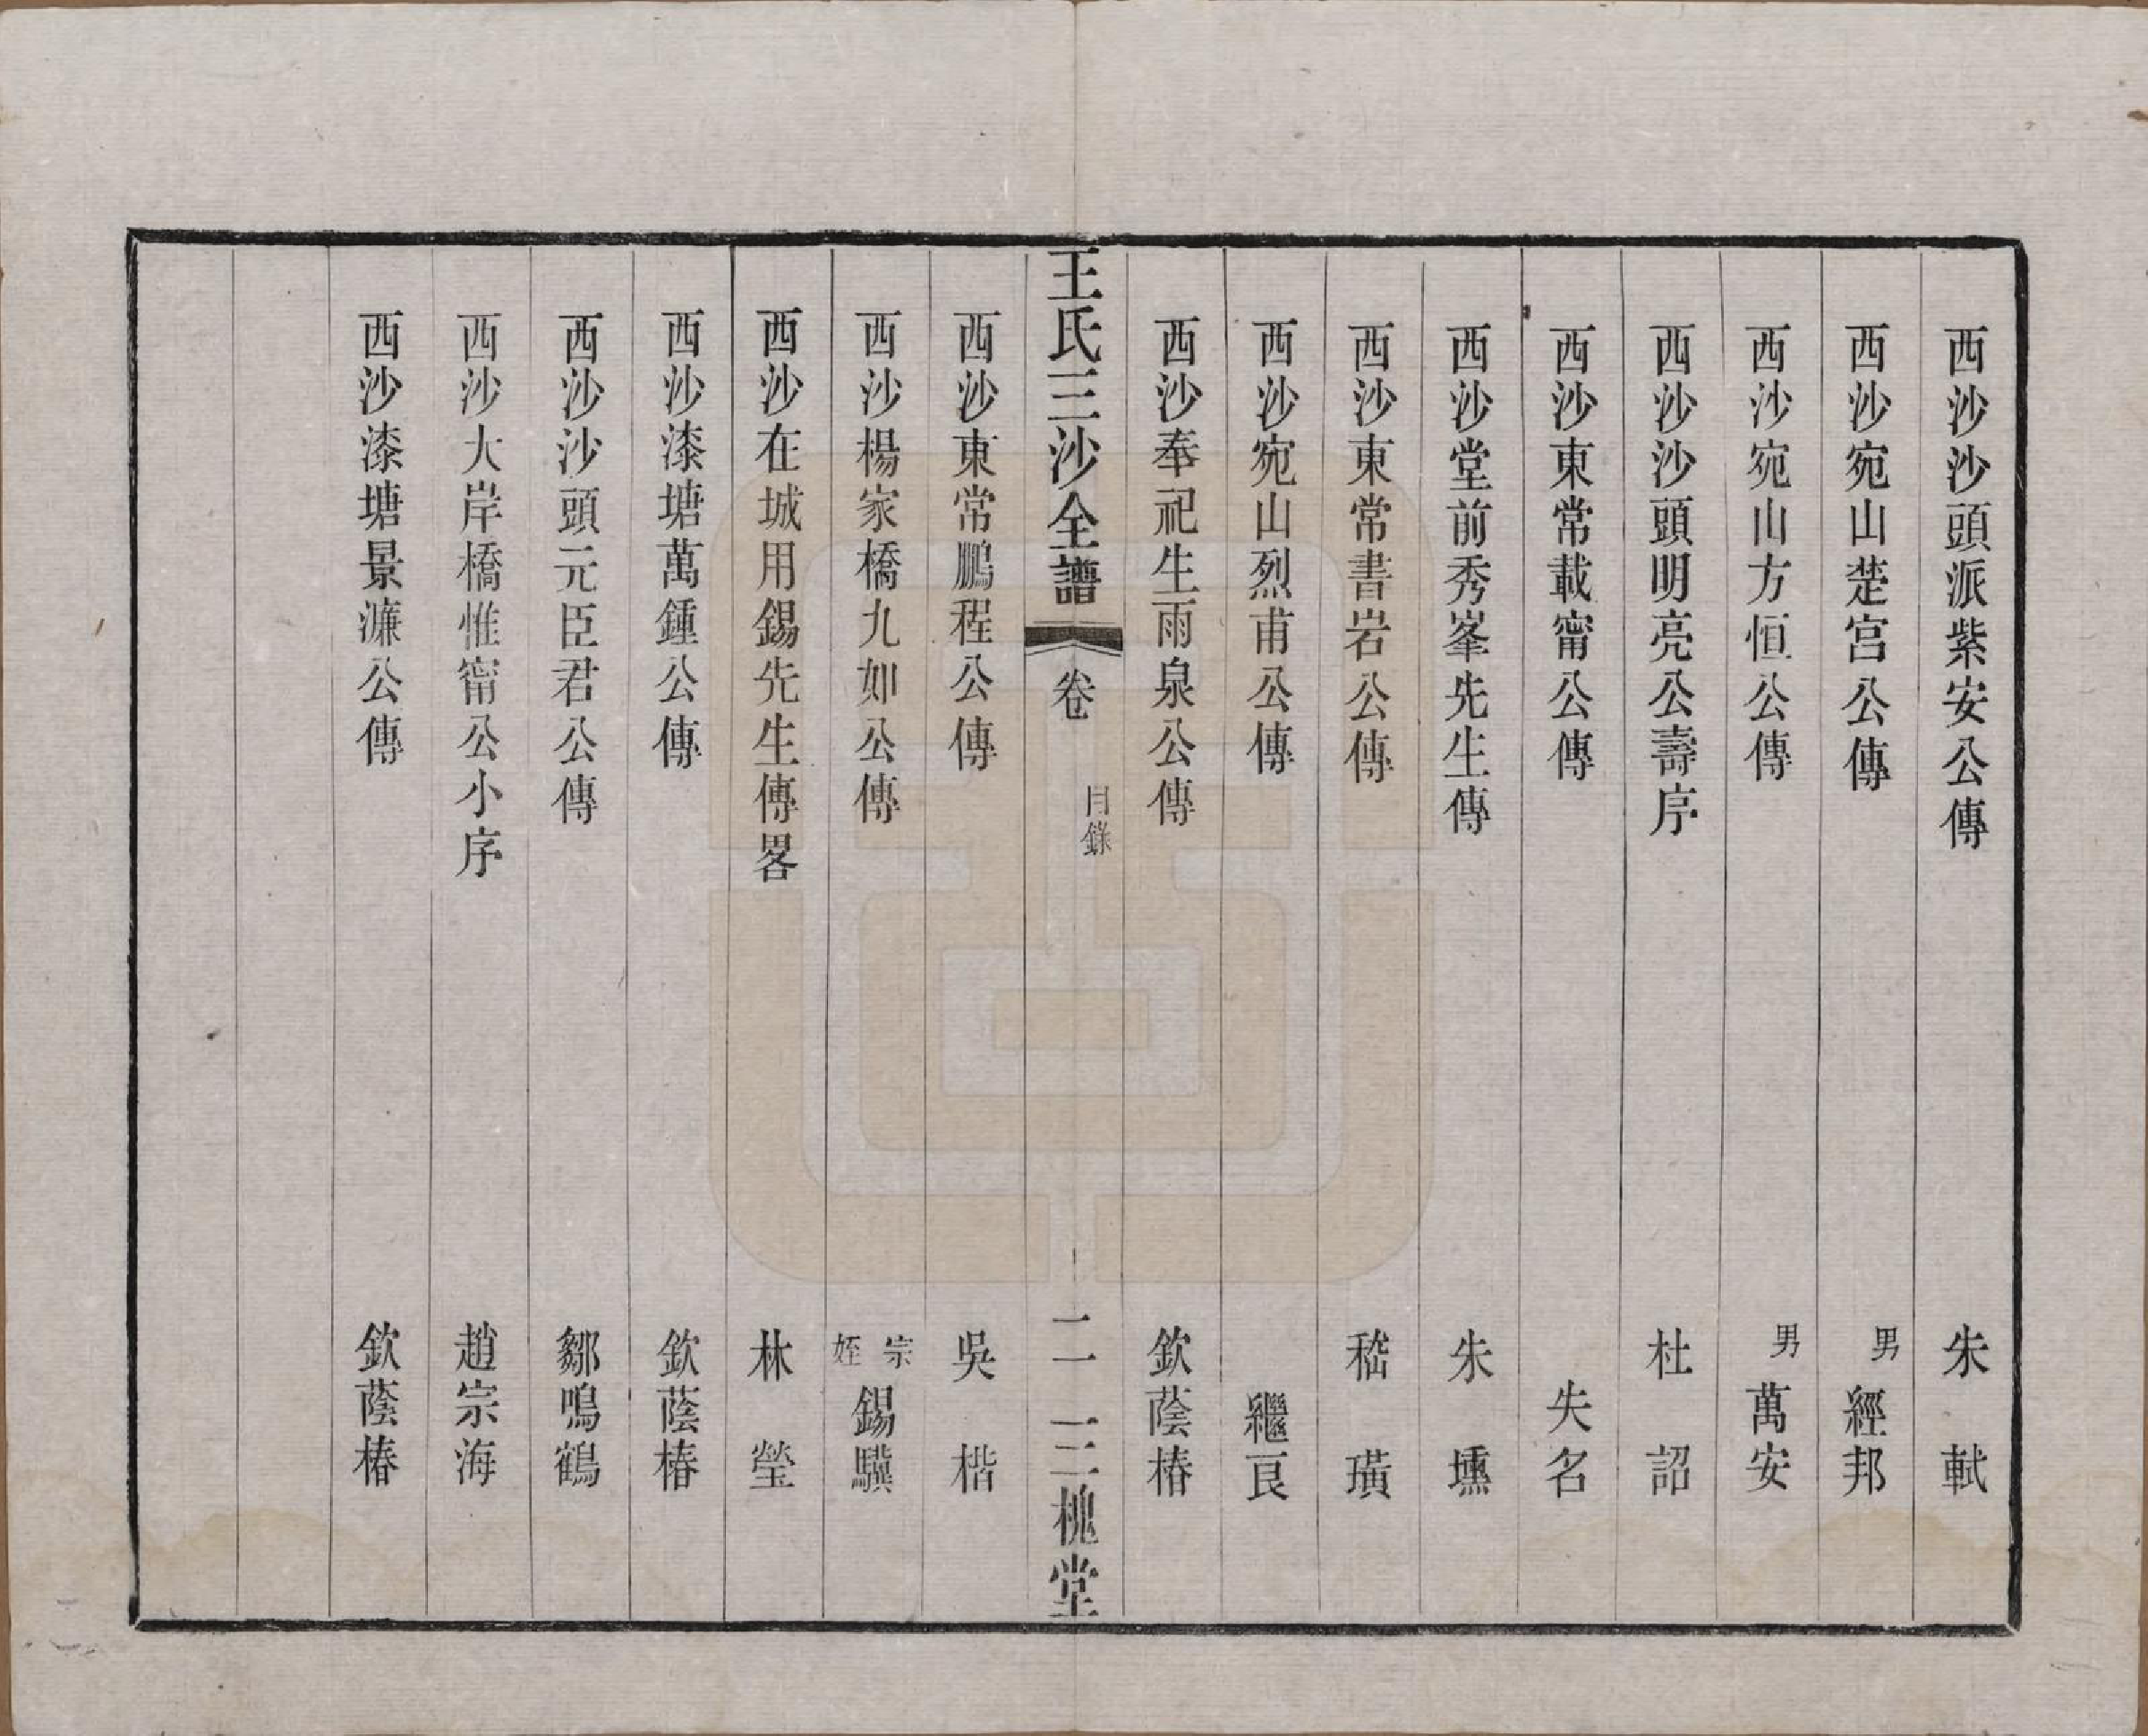 西沙沙頭派紫安公傳 朱軾
西沙宛山楚宫公傳 男經邦
西沙宛山方恒公傳 男萬安
西沙沙頭明亮公壽序 杜詔
西沙東常載甯公傳 失名
西沙堂前秀峯先生傳 朱壎
西沙東常書岩公傳 嵇璜
西沙宛山烈甫公傳 繼良
西沙奉祀生雨泉公傳 欽蔭椿
王氏三沙全譜 卷 目錄 二 三槐堂
西沙東常鵬程公傳 吳楷
西沙楊家橋九如公傳 宗姪錫驥
西沙在城用錫先生傳畧 林瑩
西沙漆塘萬鍾公傳 欽蔭椿
西沙沙頭元臣君公傳 鄒鳴鶴
西沙大岸橋惟甯公小序 趙宗海
西沙漆塘景濂公傳 欽蔭椿